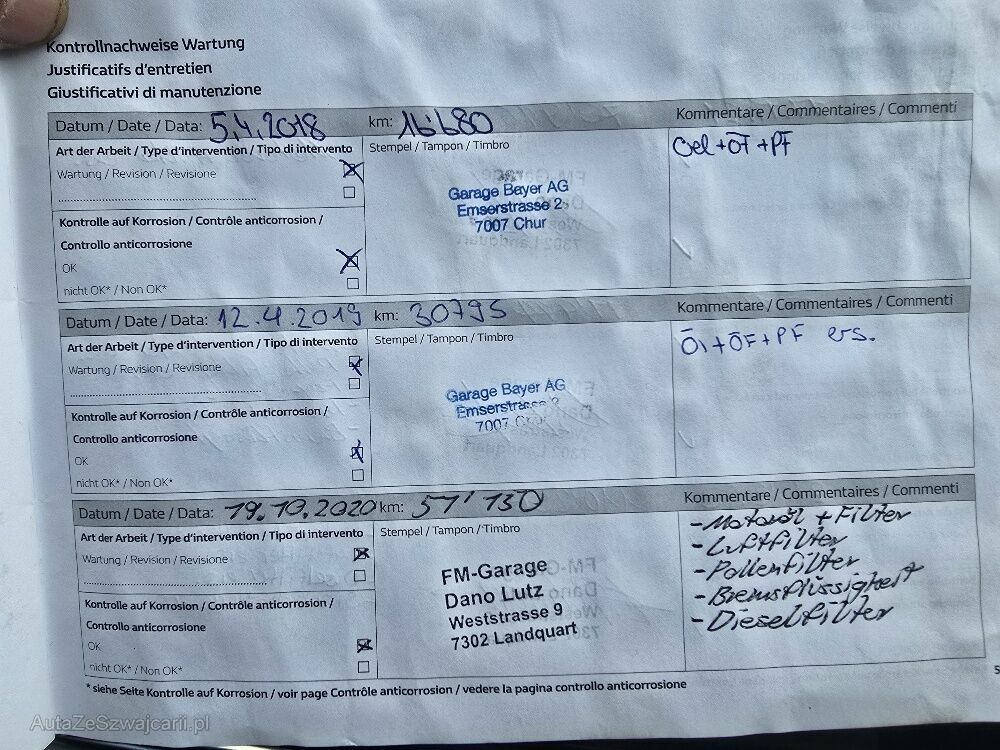 Kontrollnachweise Wartung
Justificatifs d'entretien
Giustificativi di manutenzione
Datum / Date / Data: 5.4.2018 km: 16'680 Kommentare / Commentaires / Commenti
Art der Arbeit / Type d'intervention / Tipo di intervento Stempel / Tampon / Timbro Oel + ÖF + PF
Wartung / Revision / Revisione
Garage Bayer AG
Emserstrasse 2
7007 Chur
Kontrolle auf Korrosion / Contrôle anticorrosion /
Controllo anticorrosione
OK
nicht OK* / Non OK*
Datum / Date / Data: 12.4.2019 km: 30795 Kommentare / Commentaires / Commenti
Art der Arbeit / Type d'intervention / Tipo di intervento Stempel / Tampon / Timbro Öl + ÖF + PF ers.
Wartung / Revision / Revisione
Garage Bayer AG
Emserstrasse 2
7007 Chur
Kontrolle auf Korrosion / Contrôle anticorrosion /
Controllo anticorrosione
OK
nicht OK* / Non OK*
Datum / Date / Data: 19.10.2020 km: 51'130 Kommentare / Commentaires / Commenti
Art der Arbeit / Type d'intervention / Tipo di intervento Stempel / Tampon / Timbro
Wartung / Revision / Revisione
FM-Garage
Dano Lutz
Weststrasse 9
7302 Landquart
- Motoröl + Filter
- Luftfilter
- Pollenfilter
- Bremsflüssigkeit
- Dieselfilter
Kontrolle auf Korrosion / Contrôle anticorrosion /
Controllo anticorrosione
OK
nicht OK* / Non OK*
* siehe Seite Kontrolle auf Korrosion / voir page Contrôle anticorrosion / vedere la pagina controllo anticorrosione
5
AutaZeSzwajcarii.pl